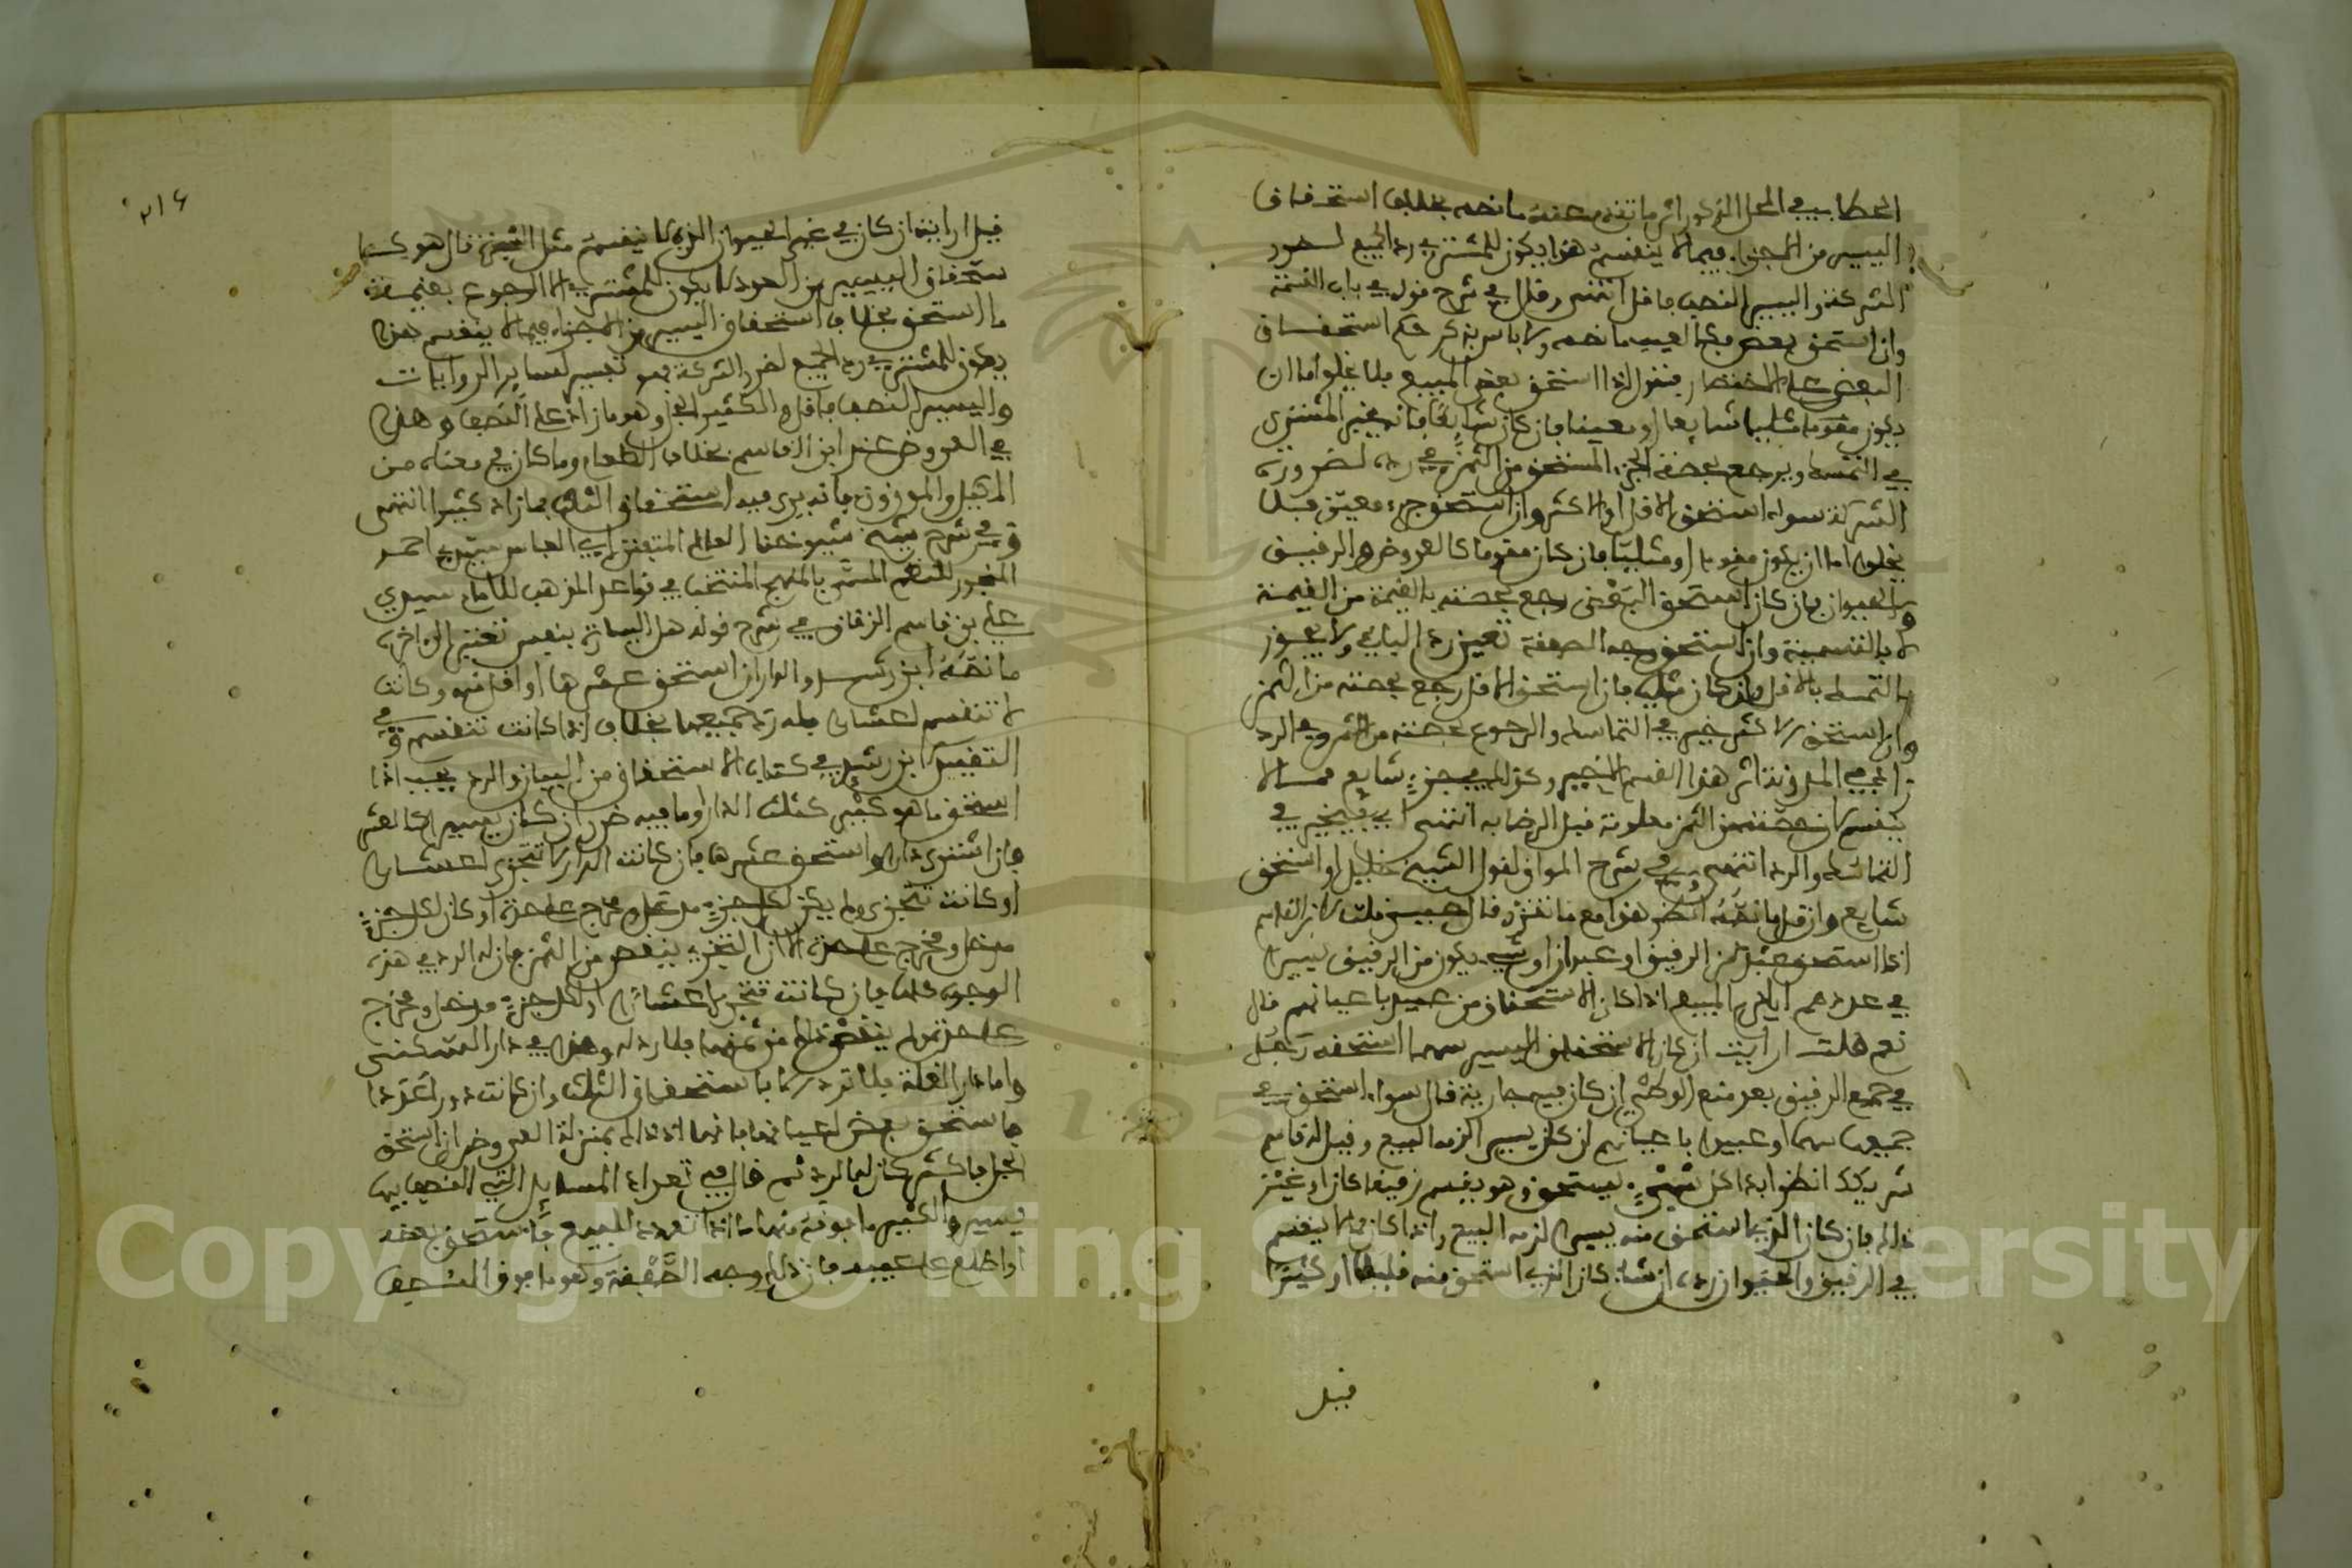 الحطاب في المحل المذكور اثر ما تقدم عنه ما نصه بخلاف استحقاق
اليسير من الاجزاء فيما لا ينقسم هذا يكون للمشتري رد الجميع لضرر
الشركة واليسير النصف فاقل انتهى وقال في شرح قوله في باب القسمة
وان استحق بعض معين ما نصه ولا باس بذكر حكم استحقاق
البعض على الاختصار فنقول اذا استحق بعض المبيع فلا يخلو اما ان
يكون مقوما مثليا شايعا او معينا فان كان شايعا فانه يخير المشتري
في التمسك ويرجع بحصة الجزء المستحق من الثمن وفي رده لضرورة
الشركة سواء استحق الاقل او الاكثر وان استحق جزء معين فلا
يخلوا اما ان يكون مقوما او مثليا فان كان مقوما كالعروض والرقيق
والحيوان فان كان استحق البعض رجع بحصته بالقيمة من القيمة
لا بالتسمية وان استحق وجه الصفقة تعين رد الباقي ولا يجوز
التمسك بالاقل وان كان مثليا فان استحق الاقل رجع بحصته من الثمن
وان استحق الاكثر خير في التماسك والرجوع بحصته من الثمن وفي الرد
انتهى المدونة اثر هذا القسم الاخير وكذلك في جزء شايع مما لا
ينقسم لان حصته من الثمن معلومة قبل الرضا به انتهى اي فيخير في
التماسك والرد انتهى وفي شرح المواق لقول الشيخ خليل او استحق
شايع وان قل ما نصه انظر هذا مع ما تقرر قال حبيس قلت لابن القاسم
اذا استحق عبد من الرقيق او عبدان او شيء يكون من الرقيق يسيرا
في عددهم ايلزم البيع اذا كان الاستحقاق من عبيد باعيانهم قال
نعم قلت ارايت ان كان الاستحقاق اليسير سهما استحقه رجل
في جميع الرقيق بعد منع الوطئ ان كان فيهم جارية قال سواء استحق في
جميعها سهما او عبيدا باعيانهم ان كان يسيرا لزمه البيع وقيل له قاسم
شريكك انظروا بدا كل شيء يستحق وهو يقسم رقيقا كان او غيره
ذلك فان كان الذي استحق منه يسيرا لزمه البيع واذا كان مما لا ينقسم
في الرقيق والحيوان رده ان شاء كان الذي استحق منه قليلا او كثيرا
قيل
٢١٤
قيل ارايت ان كان في غير الحيوان الذي لا ينقسم مثل الشجرة قال هو كـ
ستحقاق اليسير من العدد لا يكون للمشتري الا الرجوع بقيمة
ما استحق بخلاف استحقاق اليسير من الاجزاء فيما لا ينقسم هذا
يكون للمشتري رد الجميع لضرر الشركة فهو تفسير لساير الروايات
واليسير النصف فاقل والكثير الجل وهو ما زاد على النصف وهذا
في العروض عند ابن القاسم بخلاف الطعام وما كان في معناه من
المكيل والموزون فانه يرى فيه استحقاق الثلث فما زاد كثيرا انتهى
وفي شرح شيخ شيوخنا العالم المتفنن ابي العباس سيدي احمد
المنجور للنظم المسمى بالمنهج المنتخب في قواعد المذهب للامام سيدي
علي بن قاسم الزقاق في شرح قوله هل اليسارة بنفس تعتبر الى اخره
ما نصه ابن رشد والدار ان استحق عشرها او اقل منه وكانت
لا تنقسم اعشارا فله رد جميعها بخلاف اذا كانت تنقسم وفي
التقييد ابن رشد في كتاب الاستحقاق من البيان والرد يجب اذا
استحق ما هو كثير كثلث الدار او ما فيه ضرر وان كان يسيرا كالعشر
فان اشترى دارا واستحق عشرها فان كانت الدار لا تتجزى اعشارا
او كانت تتجزى ولم يكن لكل جزء مدخل ومخرج على حدة او كان لكل جزء
مدخل ومخرج على حدة الا ان التجزيء ينقص من الثمن فان له الرد في هذه
الوجوه كلها فان كانت تتجزى اعشارا ولكل جزء مدخل ومخرج
على حدته ولم ينقص ذلك من ثمنها فلا رد له وهذا في دار السكنى
واما دار الغلة فلا ترد الا باستحقاق الثلث وان كانت دورا عددا
فاستحق بعض اعيانها فانها اذذاك بمنزلة العروض ان استحق
الجل فاكثر كان له الرد ثم قال في تعداد المسايل التي النصف فيها
يسير والكثير ما فوقه منها اذا تعدد المبيع فاستحق بعضه
او اطلع على عيبه فان ذلك وجه الصفقة وهو ما فوق النصف